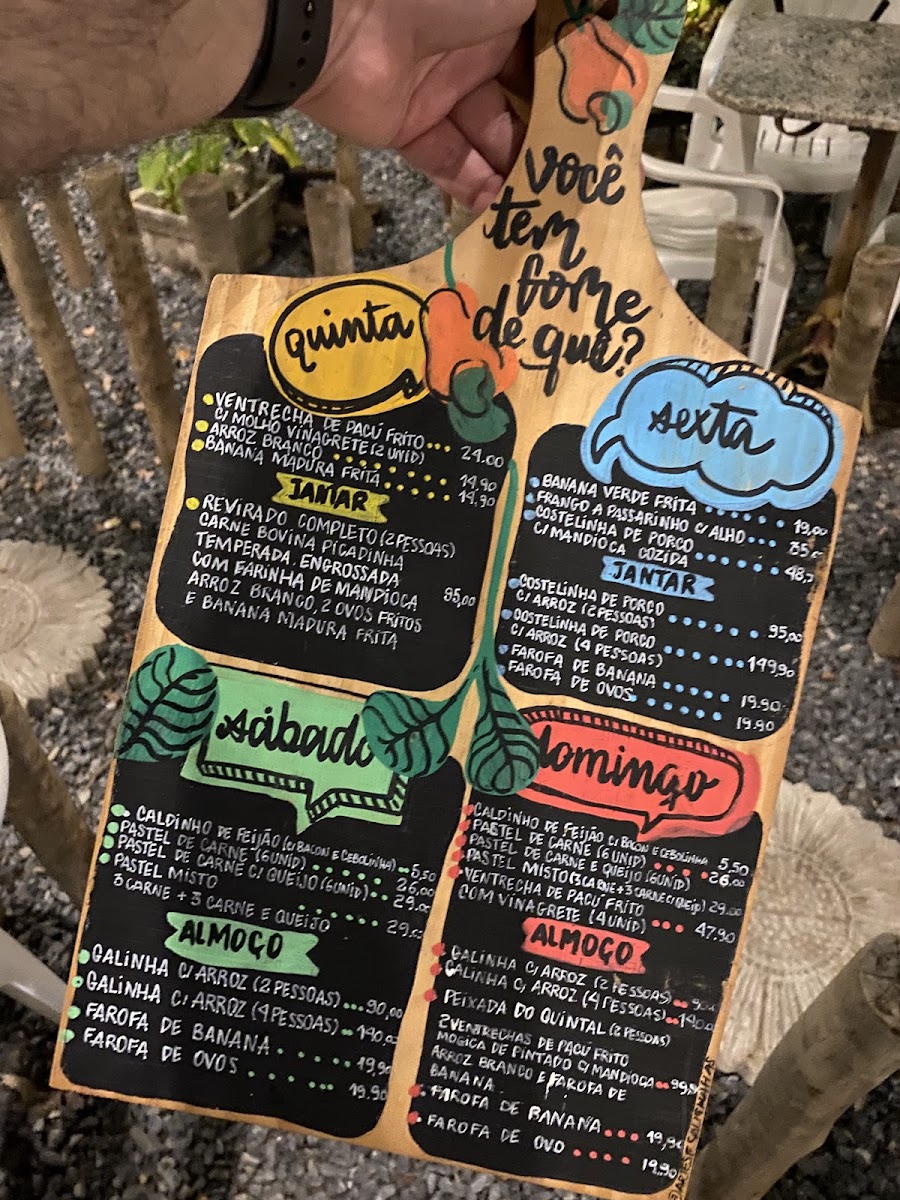 você
tem
fome
de quê?
quinta
VENTRECHA DE PACÚ FRITO
C/ MOLHO VINAGRETE (2 UNID) 24.00
ARROZ BRANCO 14,90
BANANA MADURA FRITA 14,90
JANTAR
REVIRADO COMPLETO (2 PESSOAS)
CARNE BOVINA PICADINHA
TEMPERADA, ENGROSSADA
COM FARINHA DE MANDIOCA 95,00
ARROZ BRANCO, 2 OVOS FRITOS
E BANANA MADURA FRITA
sexta
BANANA VERDE FRITA 19,00
FRANGO A PASSARINHO C/ ALHO
COSTELINHA DE PORCO
C/ MANDIOCA COZIDA
JANTAR
COSTELINHA DE PORCO
C/ ARROZ (2 PESSOAS) 95,00
COSTELINHA DE PORCO
C/ ARROZ (4 PESSOAS) 149,90
FAROFA DE BANANA 19.90
FAROFA DE OVOS 19.90
sábado
CALDINHO DE FEIJÃO (C/ BACON E CEBOLINHA) 5,50
PASTEL DE CARNE (6 UNID) 26,00
PASTEL DE CARNE C/ QUEIJO (6 UNID) 29.00
PASTEL MISTO
3 CARNE + 3 CARNE E QUEIJO 29.00
ALMOÇO
GALINHA C/ ARROZ (2 PESSOAS) 90,00
GALINHA C/ ARROZ (4 PESSOAS) 140,00
FAROFA DE BANANA 19,90
FAROFA DE OVOS 19.90
domingo
CALDINHO DE FEIJÃO (C/ BACON E CEBOLINHA 5,50
PASTEL DE CARNE (6 UNID) 26,00
PASTEL DE CARNE E QUEIJO (6 UNID)
PASTEL MISTO (3 CARNE + 3 CARNE C/ QUEIJO) 29.00
VENTRECHA DE PACÚ FRITO
COM VINAGRETE (4 UNID) 47.90
ALMOÇO
GALINHA C/ ARROZ (2 PESSOAS) 90,00
GALINHA C/ ARROZ (4 PESSOAS) 140,00
PEIXADA DO QUINTAL (2 PESSOAS)
2 VENTRECHAS DE PACÚ FRITO
MOGICA DE PINTADO C/ MANDIOCA 99,90
ARROZ BRANCO E FAROFA DE
BANANA
FAROFA DE BANANA 19,90
FAROFA DE OVO 19.90